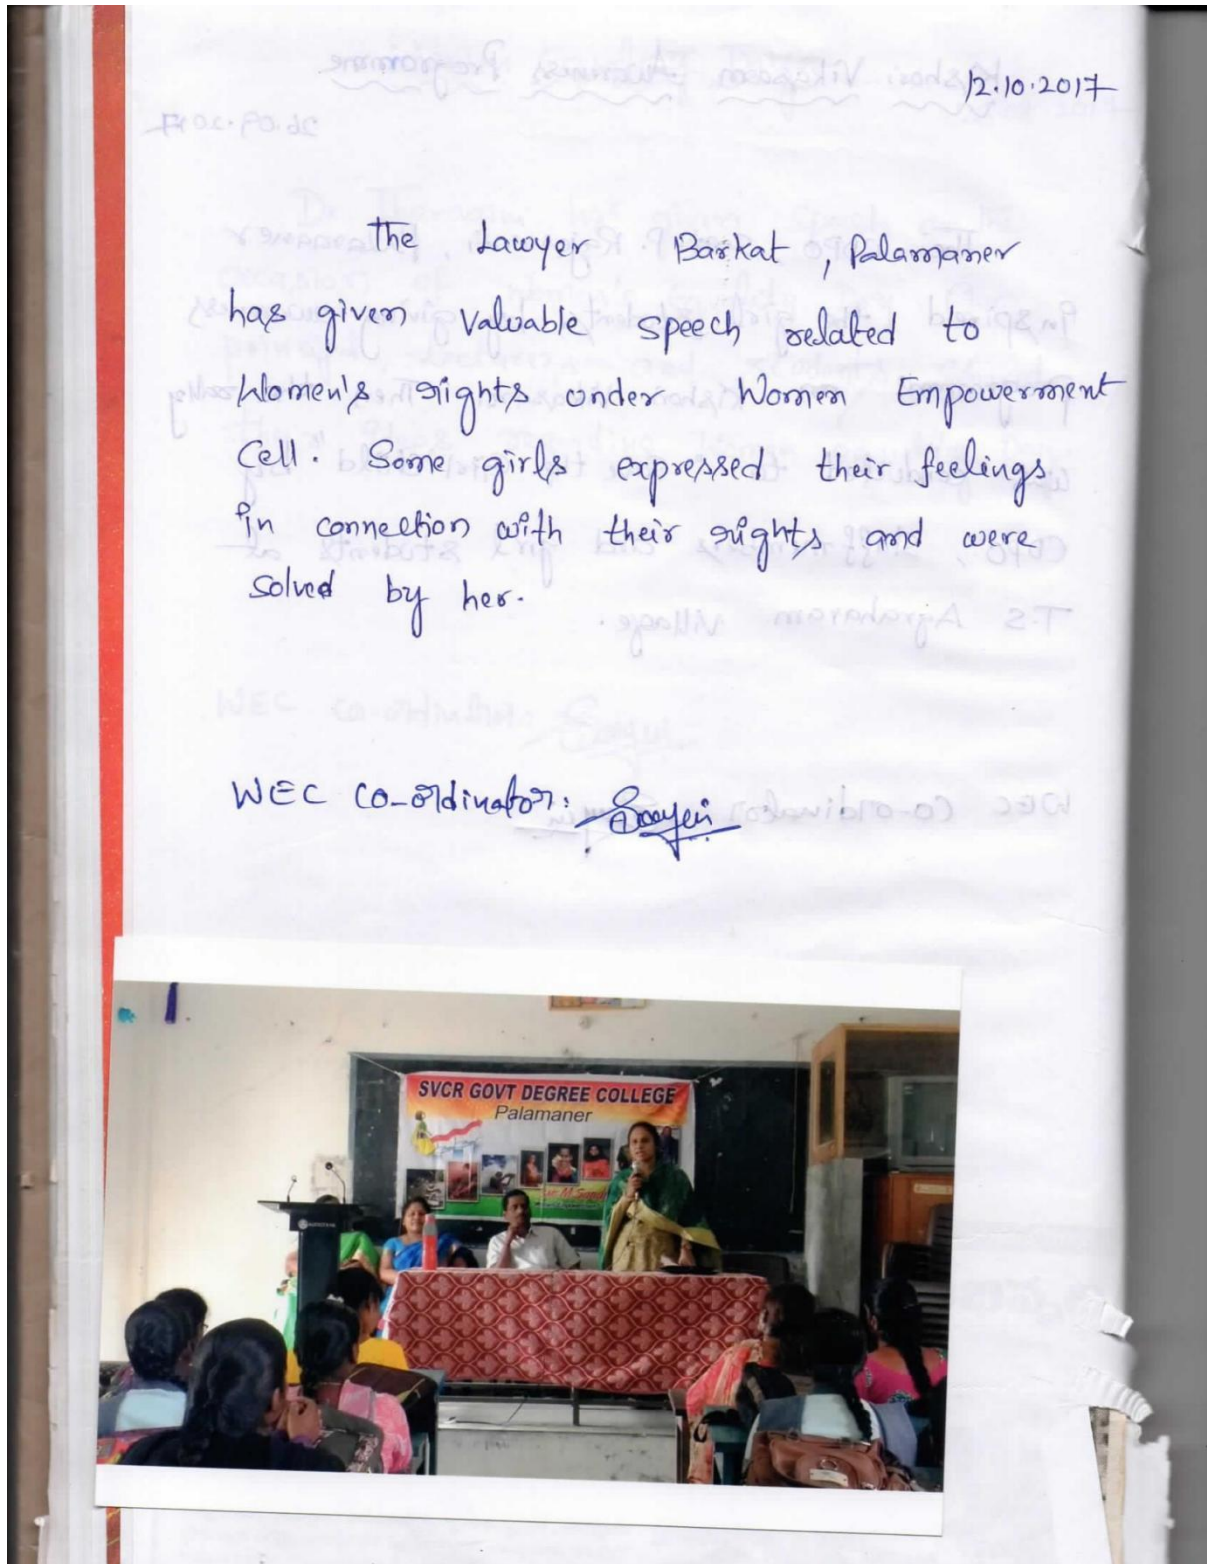 12.10.2017
The Lawyer Barkat, Palamaner
has given Valuable speech related to
Women's rights under Women Empowerment
Cell. Some girls expressed their feelings
in connection with their rights and were
solved by her.
WEC Co-ordinator:
SVCR GOVT DEGREE COLLEGE
Palamaner